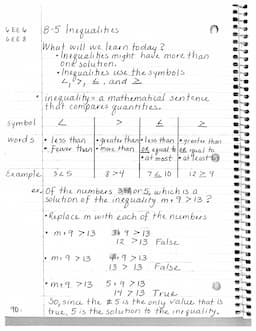 6.EE.6
6.EE.8
8-5 Inequalities
What will we learn today?
• Inequalities might have more than
one solution.
• Inequalities use the symbols
<, >, ≤, and ≥
• inequality = a mathematical sentence
that compares quantities.
symbol < > ≤ ≥
words • less than • greater than • less than • greater than
• fewer than • more than or equal to or equal to
• at most • at least
Example 3<5 8>4 7≤10 12≥9
ex. Of the numbers or 5, which is a
solution of the inequality m+9>13?
• Replace m with each of the numbers
• m+9>13 3+9>13
12>13 False
• m+9>13 4+9>13
13>13 False
• m+9>13 5+9>13
14>13 True
So, since the #5 is the only value that is
true, 5 is the solution to the inequality.
90.